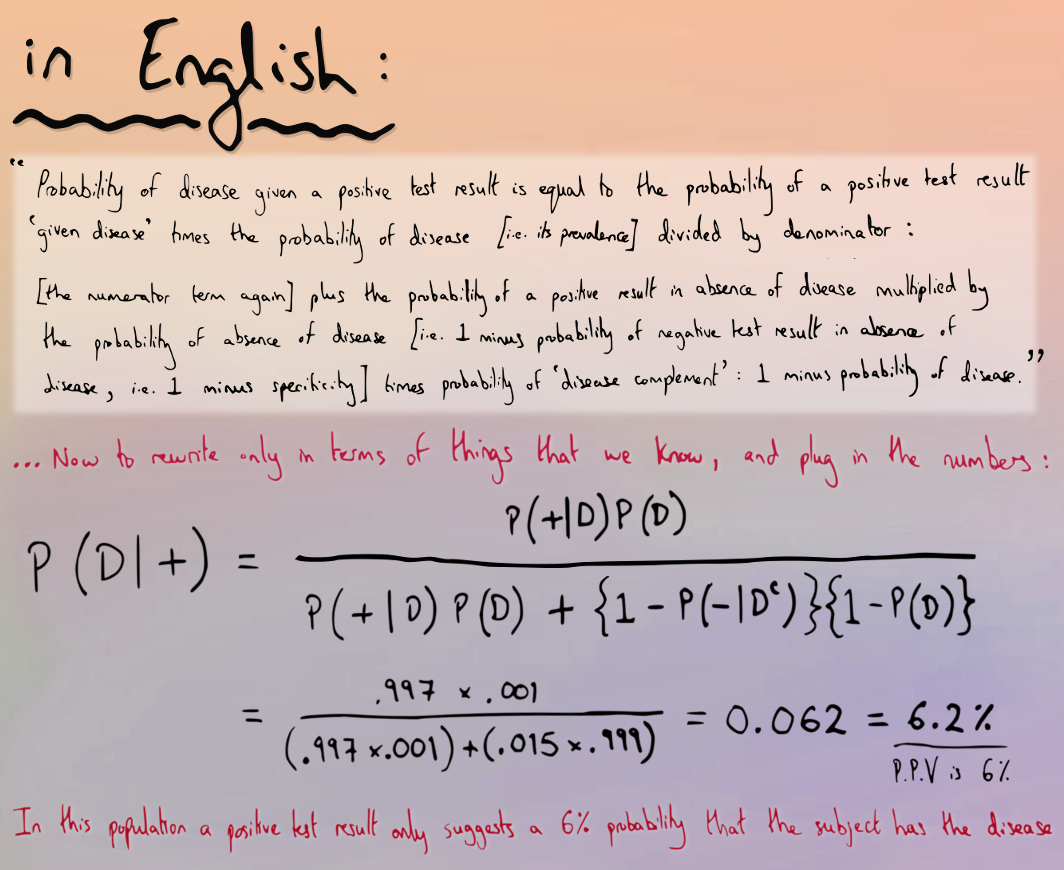 in English:
“ Probability of disease given a positive test result is equal to the probability of a positive test result
‘given disease’ times the probability of disease [i.e. its prevalence] divided by denominator :
[the numerator term again] plus the probability of a positive result in absence of disease multiplied by
the probability of absence of disease [i.e. 1 minus probability of negative test result in absence of
disease, i.e. 1 minus specificity] times probability of ‘disease complement’ : 1 minus probability of disease. ”
... Now to rewrite only in terms of things that we know, and plug in the numbers :
P(+|D)P(D)
P (D|+) =
P(+|D) P(D) + {1 - P(-|Dᶜ)}{1-P(D)}
.997 x .001
= = 0.062 = 6.2%
(.997 x.001)+(.015 x .999)
P.P.V is 6%
In this population a positive test result only suggests a 6% probability that the subject has the disease